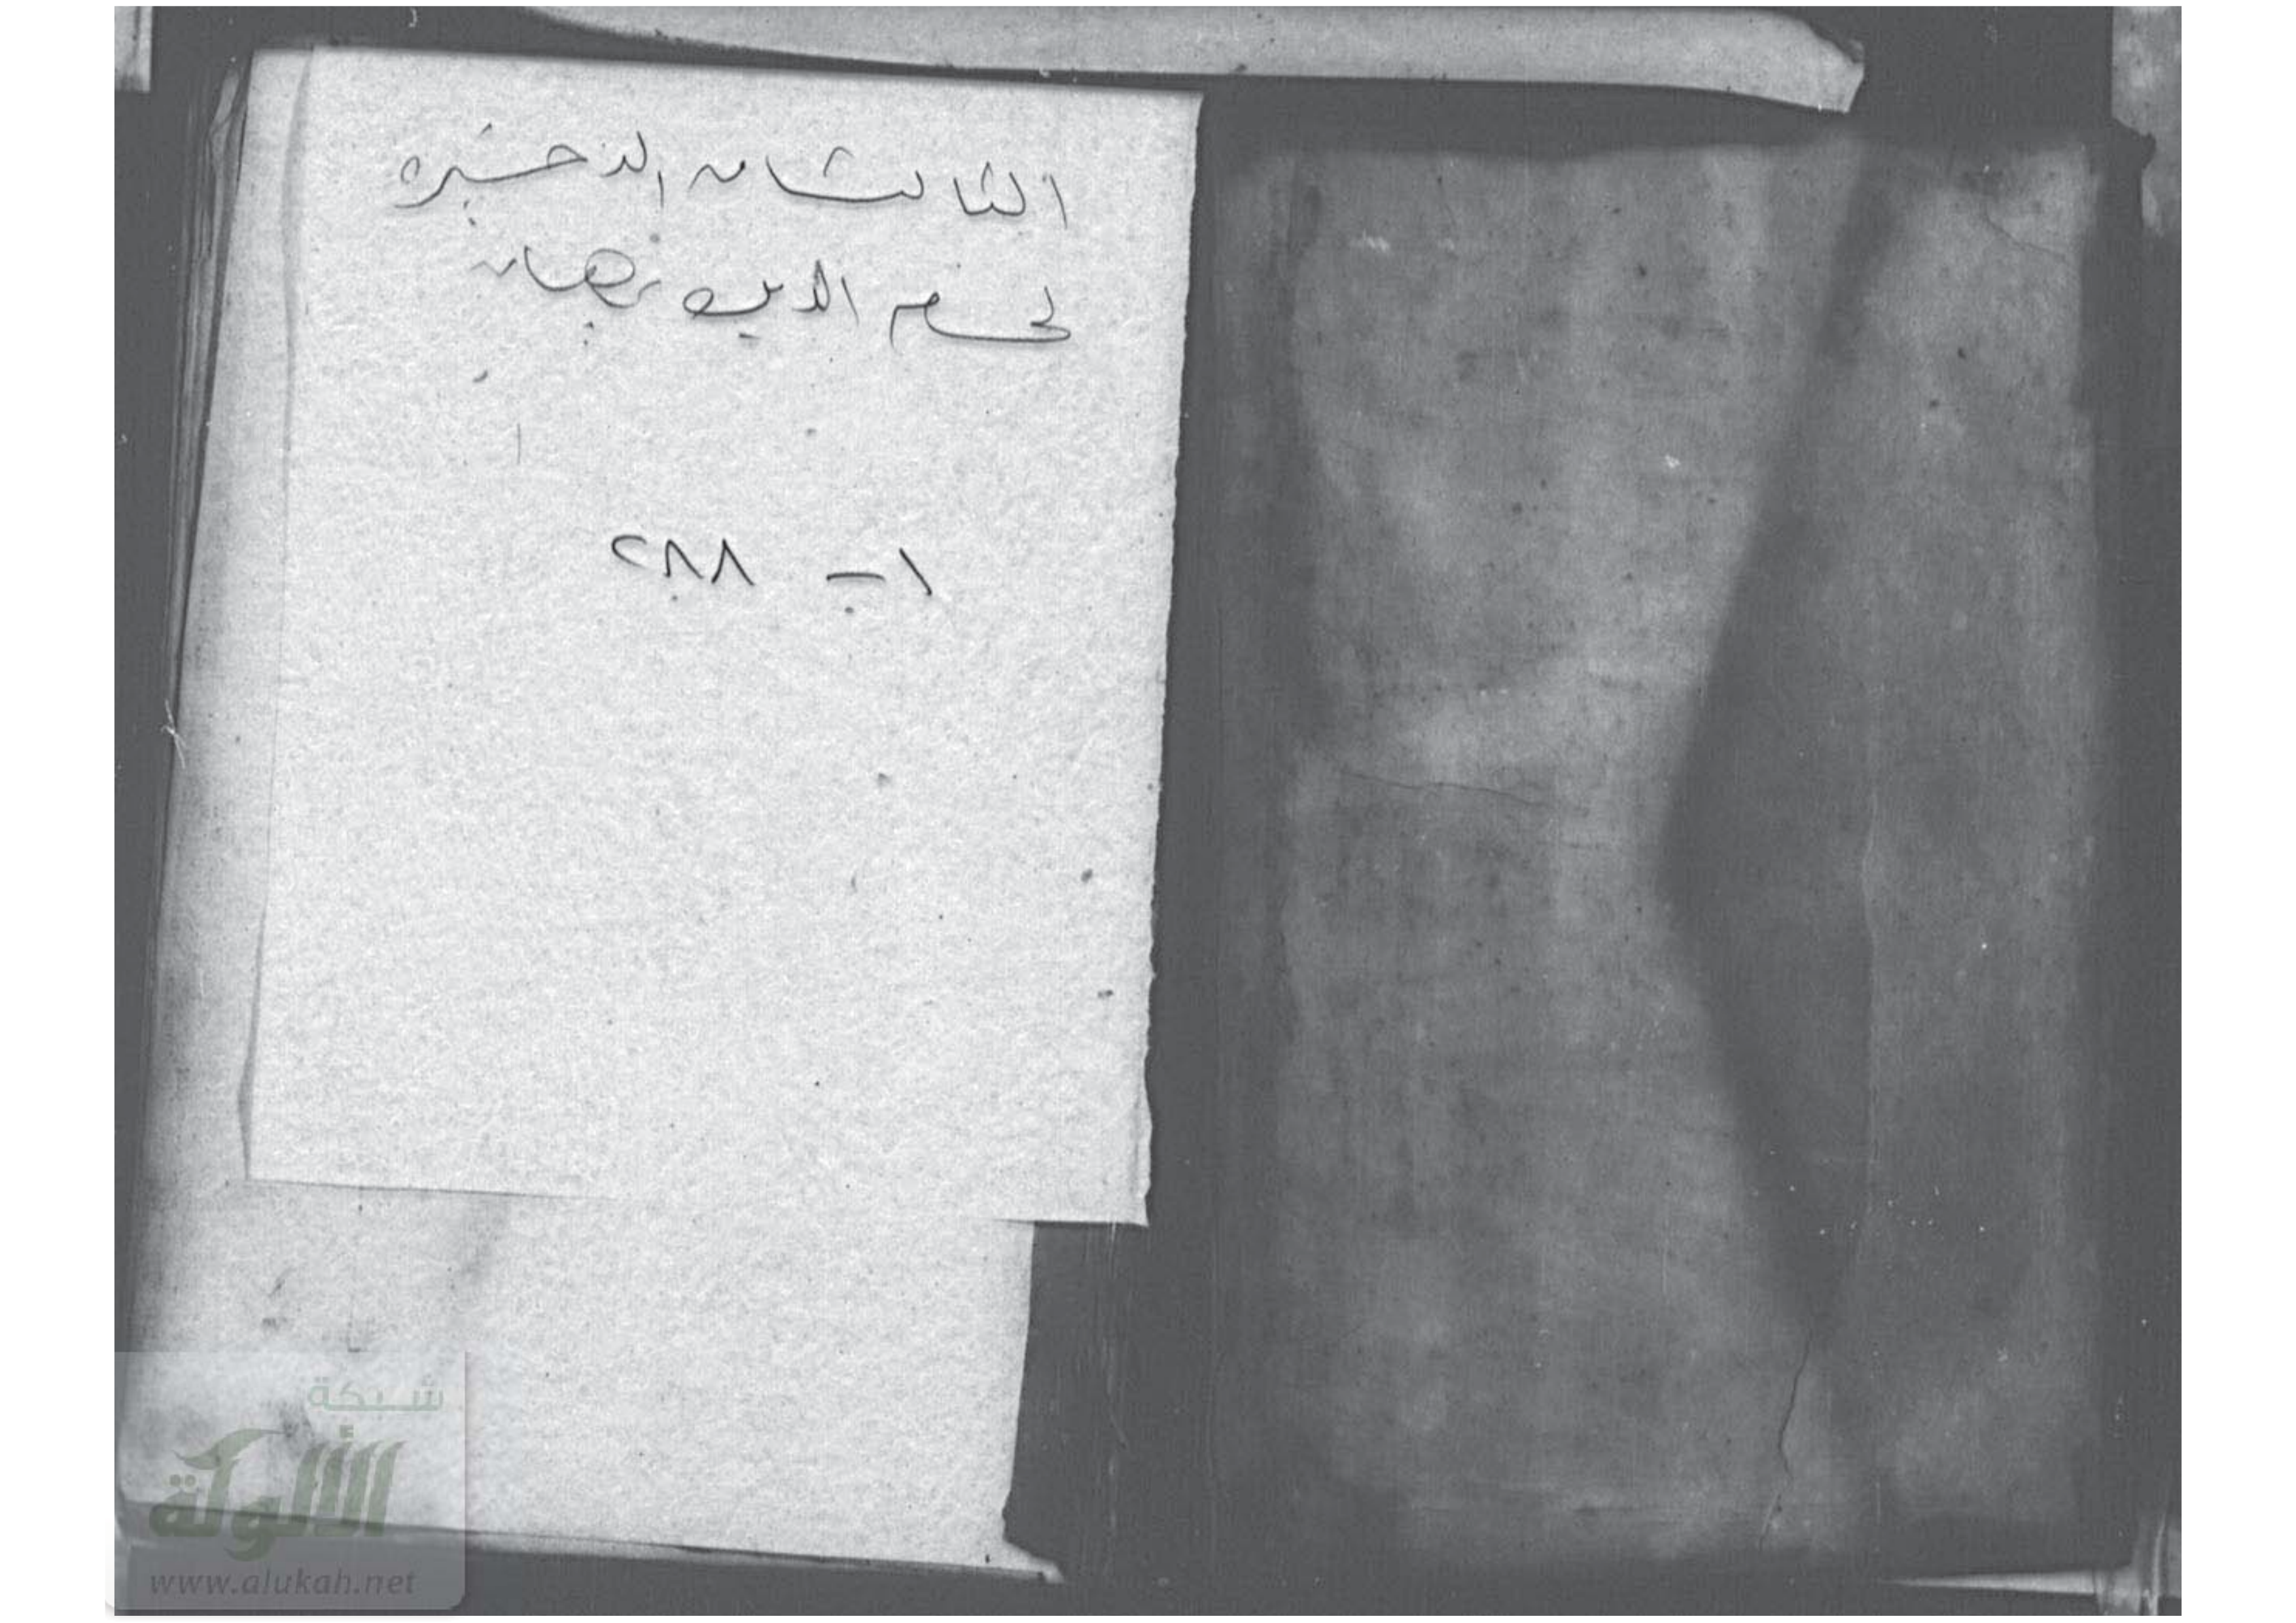 الثالث من الذخيره
لحسام الدين
١ - ٢٨٨
شبكة
الألوكة
www.alukah.net